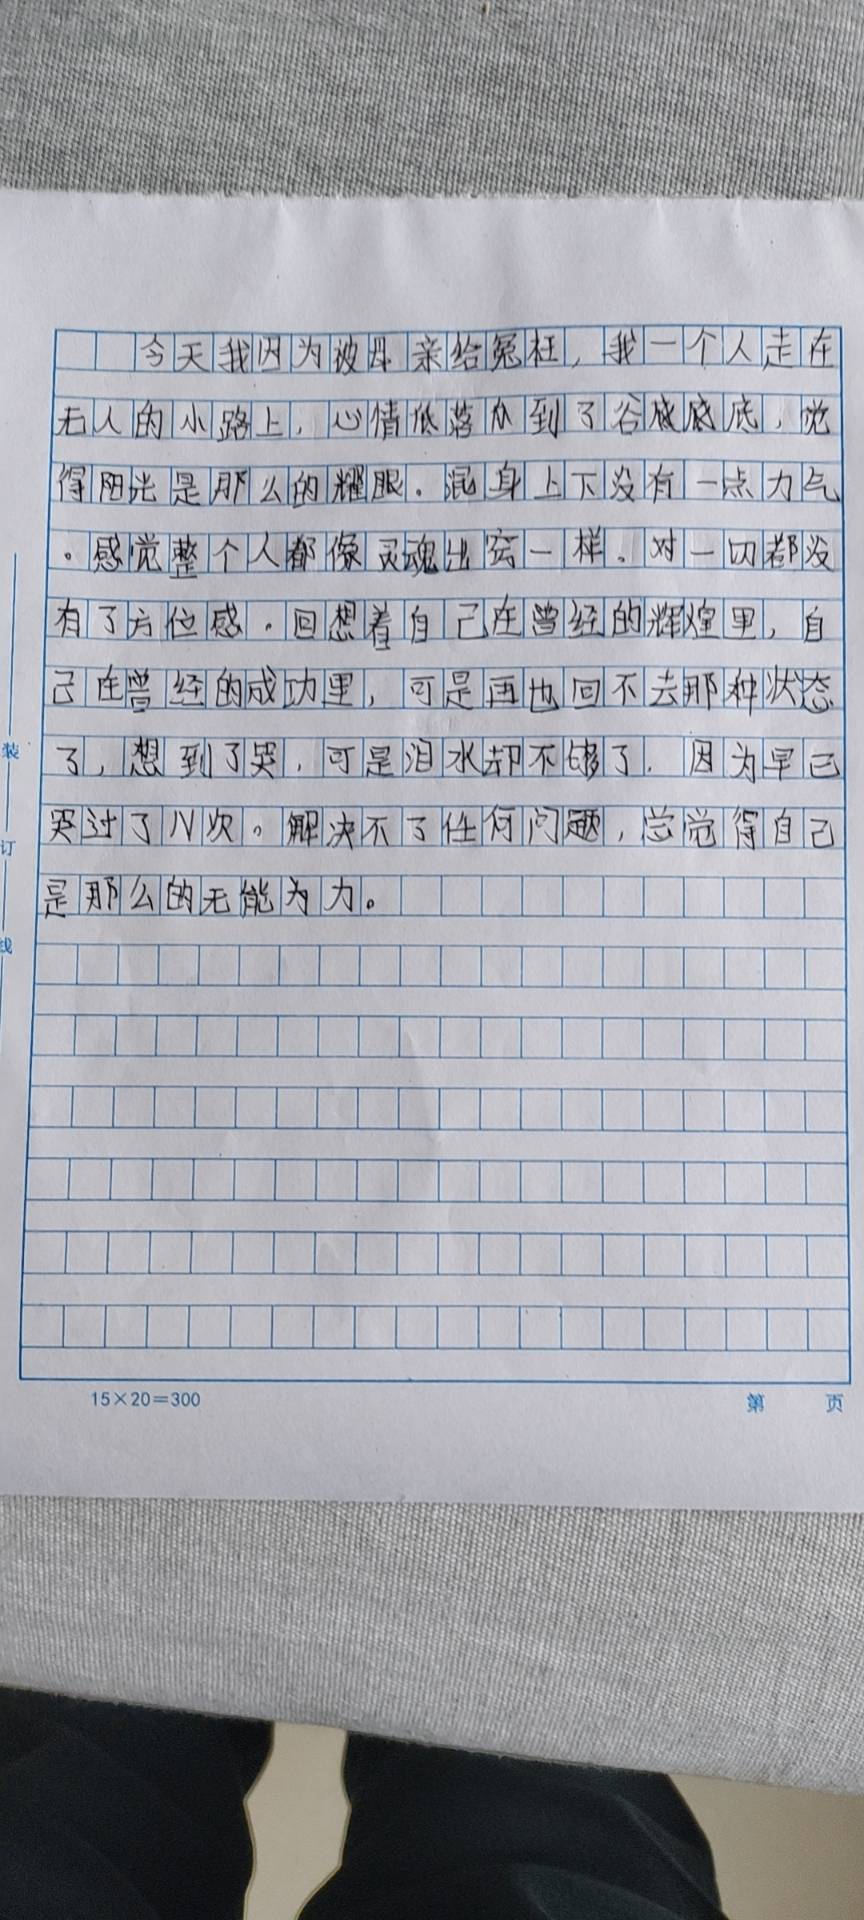 今天我因为被母亲给冤枉，我一个人走在
无人的小路上，心情低落从到了谷底底底，觉
得阳光是那么的耀眼。混身上下没有一点力气
。感觉整个人都像灵魂出窍一样。对一切都没
有了方位感。回想着自己在曾经的辉煌里，自
己在曾经的成功里，可是再也回不去那种状态
了，想到了哭，可是泪水却不够了. 因为早已
哭过了N次。解决不了任何问题，总觉得自己
是那么的无能为力。
装
订
线
15×20=300
第 页